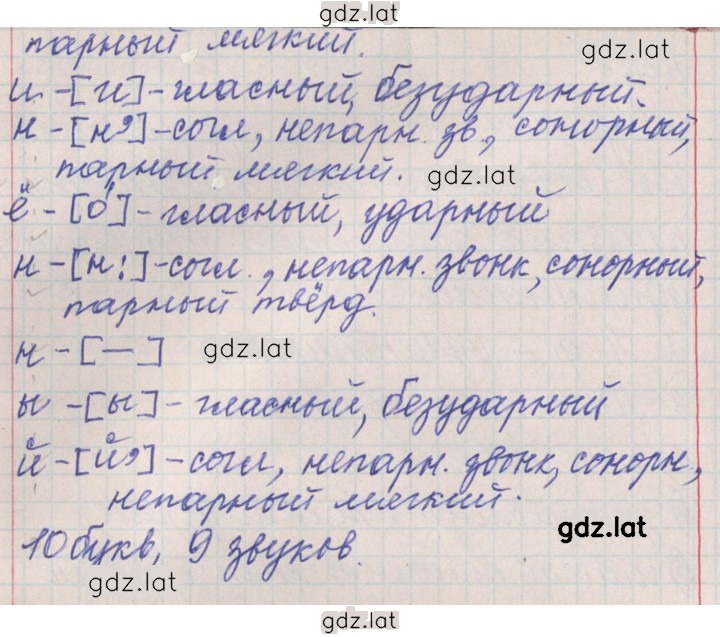 gdz.lat
парный мягкий.
gdz.lat
и - [и] - гласный, безударный.
н - [н'] - согл, непарн. зв, сонорный,
парный мягкий.
gdz.lat
ё - [о́] - гласный, ударный
н - [н:] - согл., непарн. звонк, сонорный,
парный твёрд.
н - [—]
gdz.lat
ы - [ы] - гласный, безударный
й - [й'] - согл, непарн. звонк, сонорн.,
непарный мягкий.
gdz.lat
10 букв, 9 звуков.
gdz.lat
gdz.lat